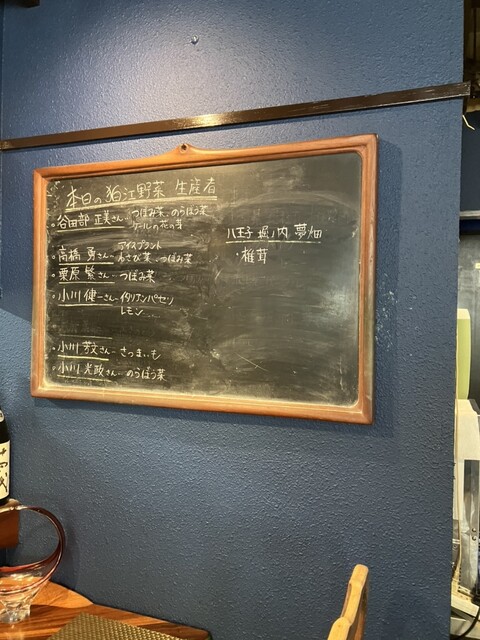 本日の狛江野菜 生産者
・谷田部 正美さん…つぼみ菜、のらぼう菜
ケールの花の芽
アイスプラント
・高橋 勇さん…わさび菜、つぼみ菜
・栗原 繁さん…つぼみ菜
・小川 健一さん…イタリアンパセリ
レモン
・小川 芳文さん…さつまいも
・小川 光政さん…のらぼう菜
八王子 堀ノ内 夢畑
・椎茸
十四代